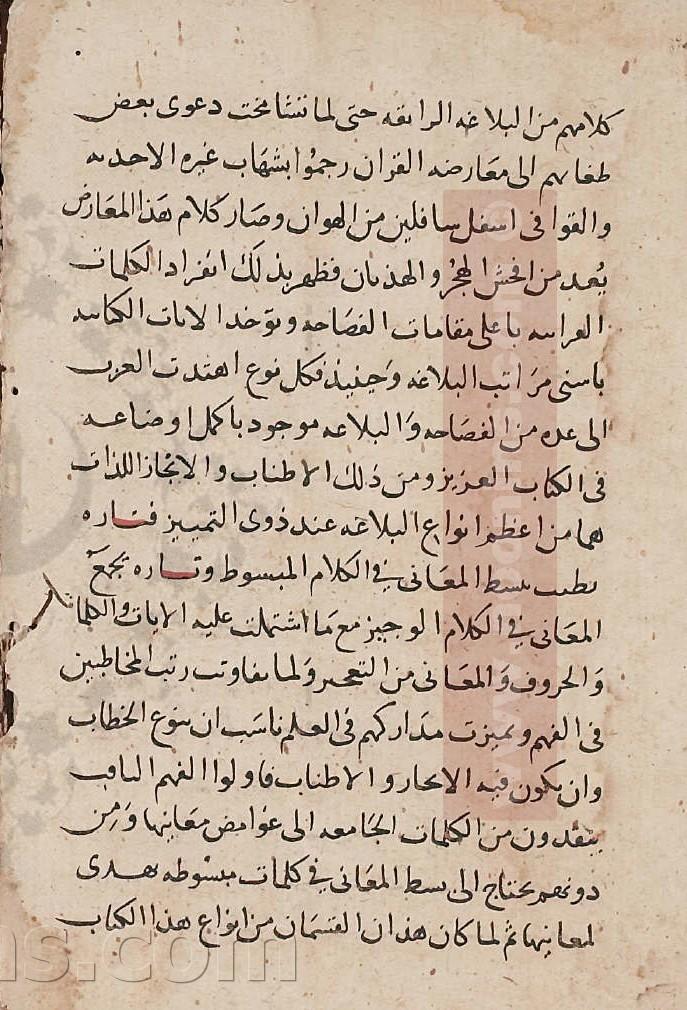 كلامهم من البلاغه الرايقه حتى لما تشامخت دعوى بعض
طغاتهم الى معارضه القران رجموا بشهاب غيره الاحديه
والقوا فى اسفل سافلين من الهوان وصار كلام هذا المعارض
يُعد من افحش الهجْر والهذيان فظهر بذلك انفراد الكلمات
القرانيه باعلى مقامات الفصاحه وتوحد الايات الكتابيه
باسنى مراتب البلاغه وحينيذ فكل نوع اهتدت العرب
الى عده من الفصاحه والبلاغه موجود باكمل اوضاعه
فى الكتاب العزيز ومن ذلك الاطناب والايجاز اللذان
هما من اعظم انواع البلاغه عند ذوى التمييز فتاره
يطنب ببسط المعانى في الكلام المبسوط وتاره يجمع
المعانى في الكلام الوجيز مع ما اشتملت عليه الايات والكلمات
والحروف والمعانى من التعجيز ولما تفاوتت رتب المخاطبين
فى الفهم وتميزت مداركهم فى العلم ناسب ان يتنوع الخطاب
وان يكون فيه الايجاز والاطناب فاولوا الفهم الثاقب
ينفذون من الكلمات الجامعه الى غوامض معانيها ومن
دونهم يحتاج الى بسط المعانى في كلمات مبسوطه تهدى
لمعانيها ثم لما كان هذان القسمان من انواع هذا الكتاب